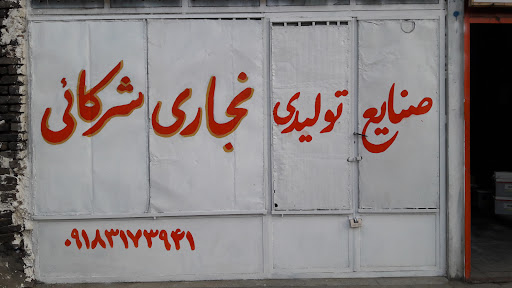 صنایع تولیدی نجاری شرکائی
۰۹۱۸۳۱۷۳۹۴۱